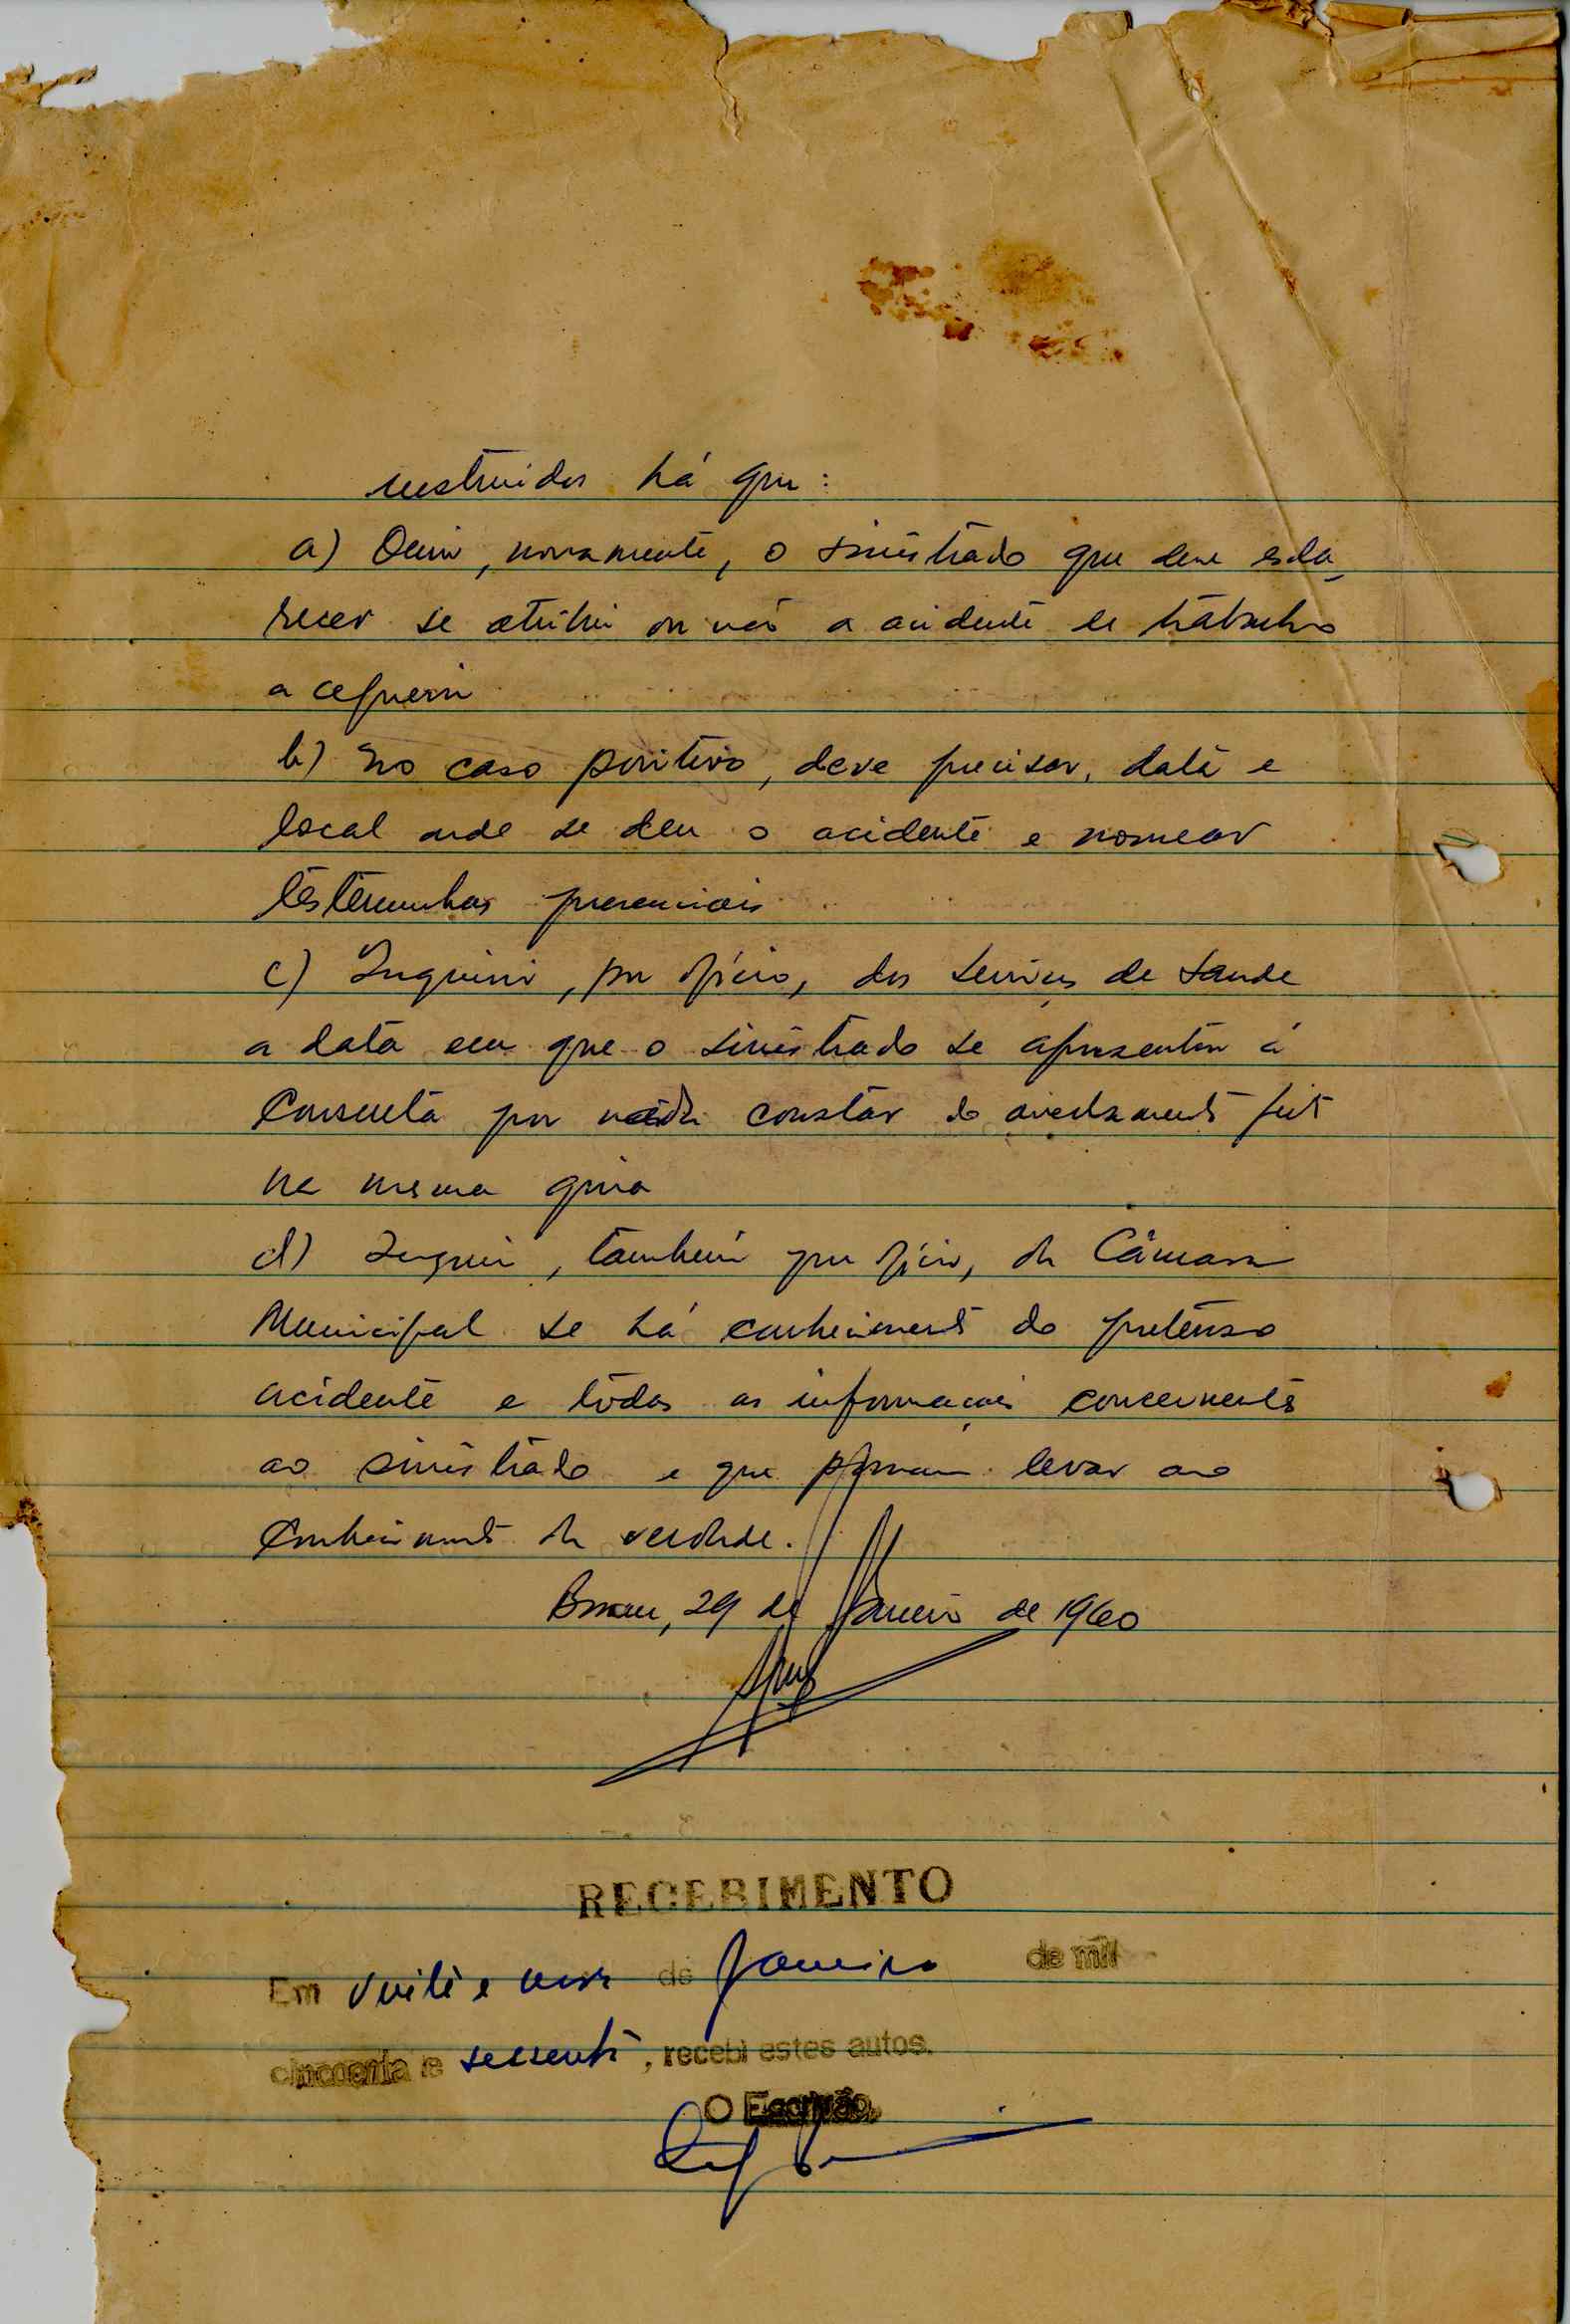 instruidos há que:
a) Ouvir, novamente, o sinistrado que deve escla_
recer se atribui ou não a acidente de trabalho
a cegueira
b) No caso positivo, deve precisar, data e
local onde se deu o acidente e nomear
testemunhas presenciais
c) Inquirir, por ofício, dos Serviços de Saude
a data em que o sinistrado se apresentou à
Consulta por nada constar do averbamento feito
na mesma guia
d) Inquirir, também por ofício, da Câmara
Municipal se há conhecimento do pretenso
acidente e todas as informações concernentes
ao sinistrado e que possam levar ao
conhecimento da verdade.
Bissau, 29 de Janeiro de 1960
RECEBIMENTO
Em vinte e nove de Janeiro de mil
cincoenta e sessenta, recebi estes autos.
O Escrivão,